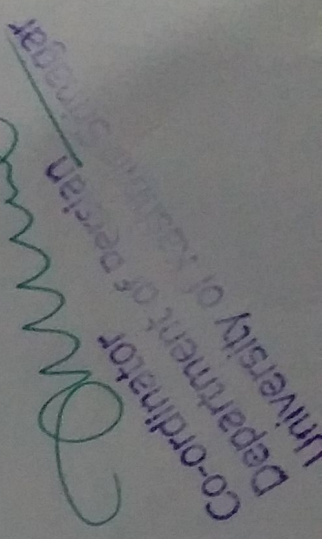 Co-ordinator
Department of Persian
University of Kashmir Srinagar